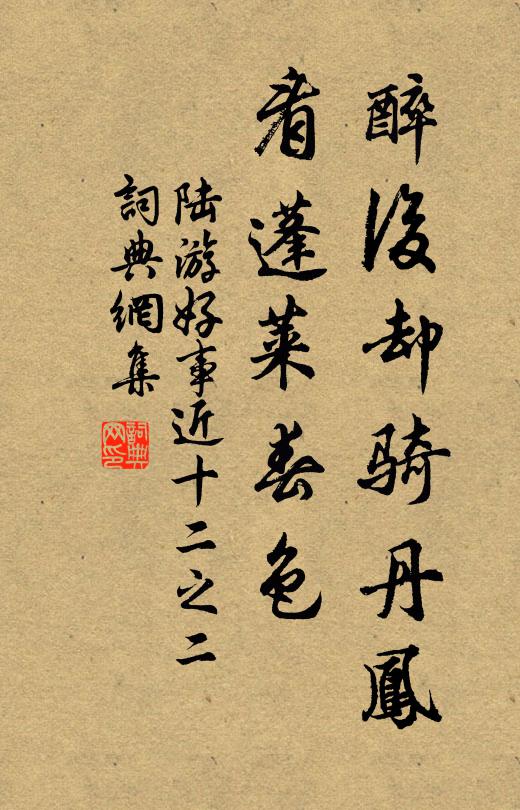 醉後却騎丹鳳
看蓬萊春色
陆游好事近十二之二
詞典網集
詞典网印